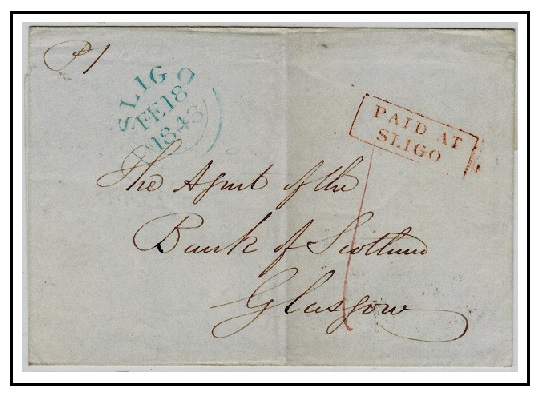 Pd
SLIGO
FE 18
1848
PAID AT
SLIGO
1
The Agent of the
Bank of Scotland
Glasgow